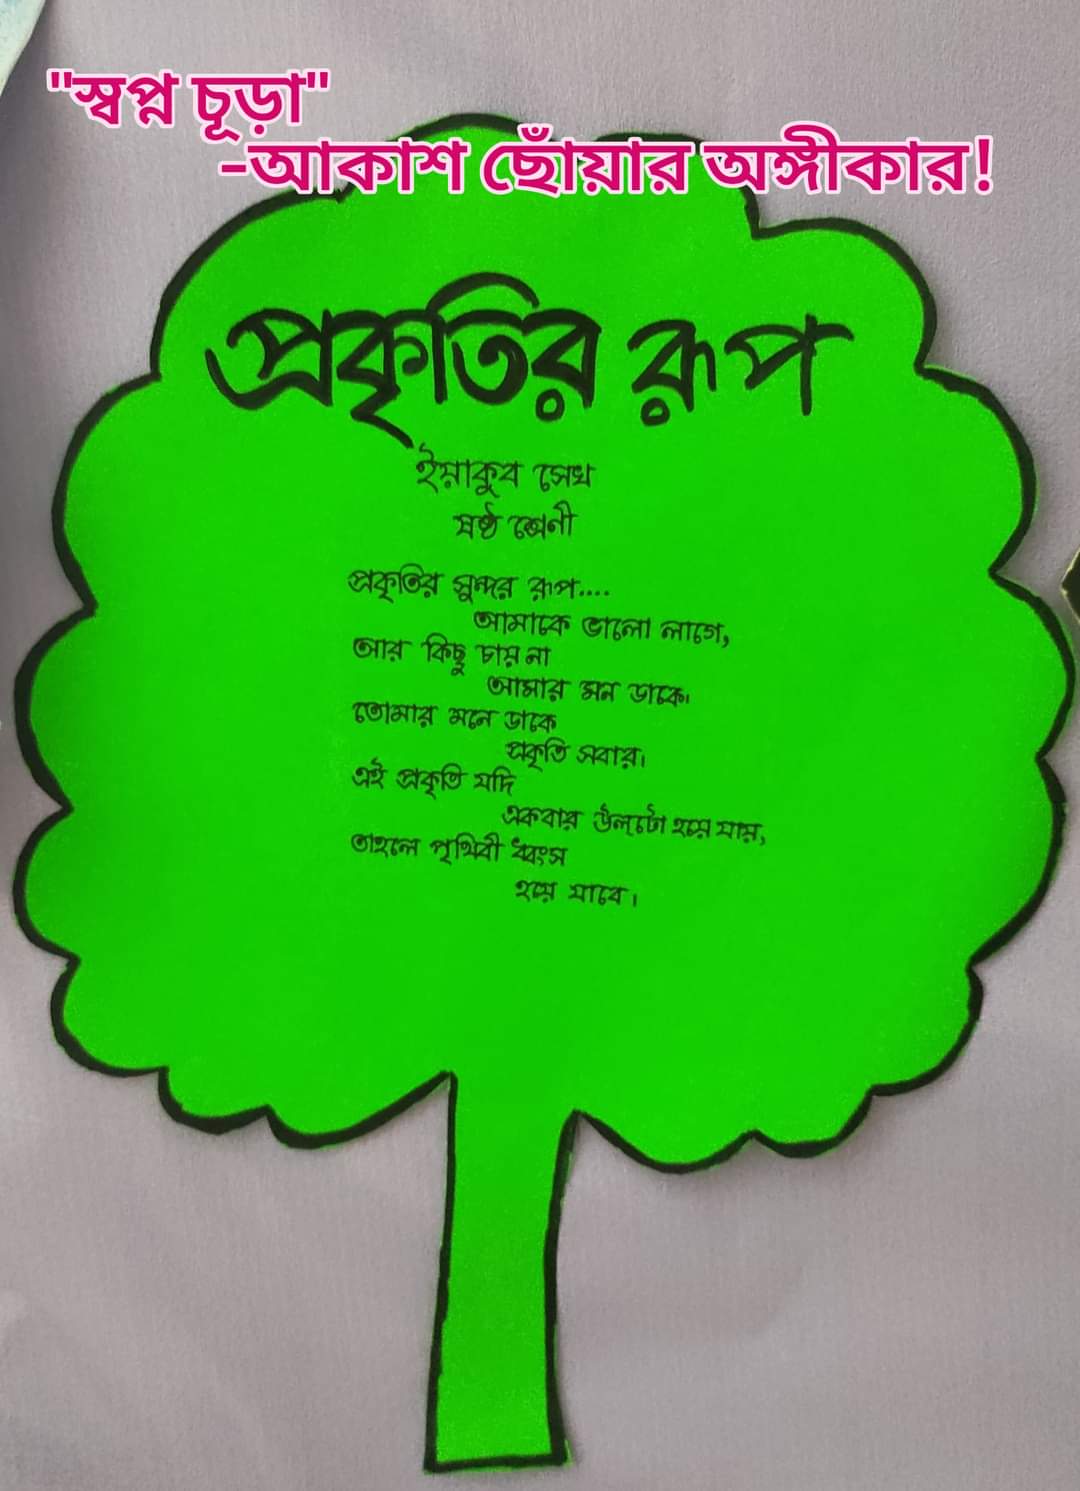 "স্বপ্ন চূড়া"
-আকাশ ছোঁয়ার অঙ্গীকার!
প্রকৃতির রূপ
ইয়াকুব সেখ
ষষ্ঠ শ্রেণী
প্রকৃতির সুন্দর রূপ....
আমাকে ভালো লাগে,
আর কিছু চায় না
আমার মন ডাকে।
তোমার মনে ডাকে
প্রকৃতি সবার।
এই প্রকৃতি যদি
একবার উল্টো হয়ে যায়,
তাহলে পৃথিবী ধ্বংস
হয়ে যাবে।